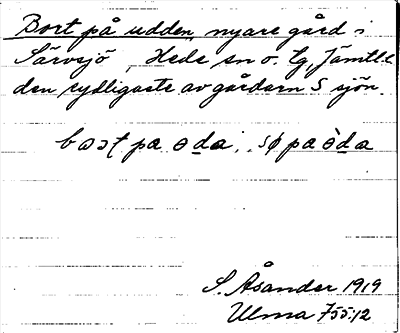 Bort på udden, nyare gård i
Särvsjö, Hede sn o. lg, Jämtl.l.
den sydligaste av gårdarn S sjön.
bɷʃt pa ɵda; sø pa ɵ̀da
S. Åsander 1919
Ulma 755:12